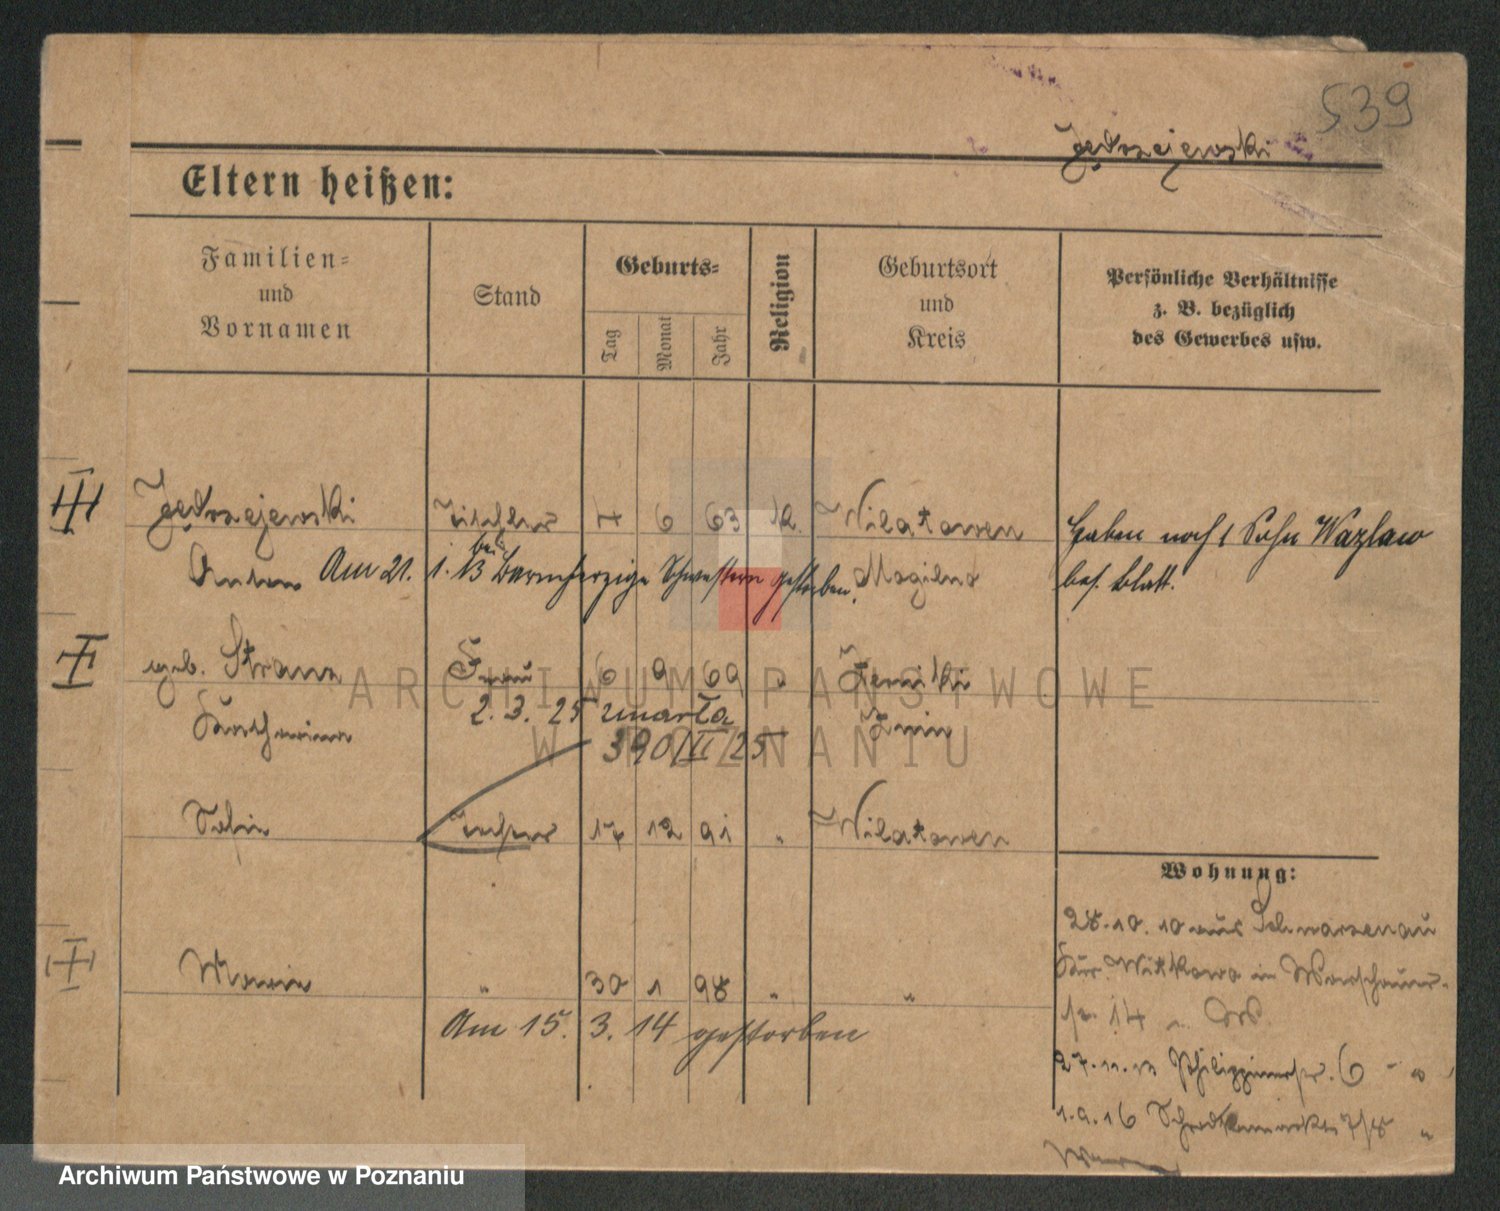 539
Jędrzejewski
Eltern heißen:
Familien- und Vornamen
Stand
Geburts-
Tag
Monat
Jahr
Religion
Geburtsort und Kreis
Persönliche Verhältnisse z. B. bezüglich des Gewerbes usw.
Jędrzejewski Tischler 7 6 63 k. Wilatowen
Haben noch 1 Sohn Wazlaw
Anton Am 21. 1. 13 bei Barmherzige Schwestern gestorben. Mogilno
bes. Blatt.
geb. Stranz Frau 6 9 69 "
Katharina 2. 3. 25 zmarła Znin
390/II 25
ARCHIWUM PAŃSTWOWE
W POZNANIU
Tochter 17 12 91 " Wilatowen
Wohnung:
28.10.10 aus Schwarzenau
Kr. Witkowo in Warschauer-
str. 14
Maria " 30 1 98 " "
Am 15. 3. 14 gestorben
27.11.13 Philippinerstr. 6 - "
1.9.16 Schrodkamarkt 7/8 "
Archiwum Państwowe w Poznaniu